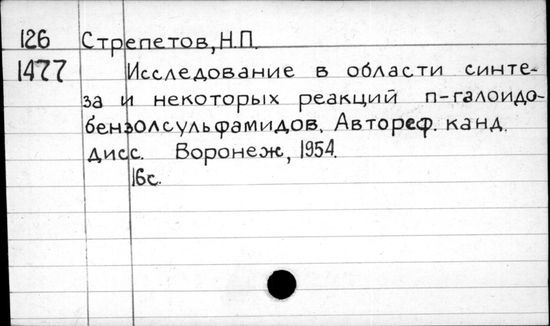 126 Стрепетов, Н.П.
1477 Исследование в области синте-
за и некоторых реакций п-галоидо-
бензолсульфамидов. Автореф. канд.
дисс. Воронеж, 1954.
16с.